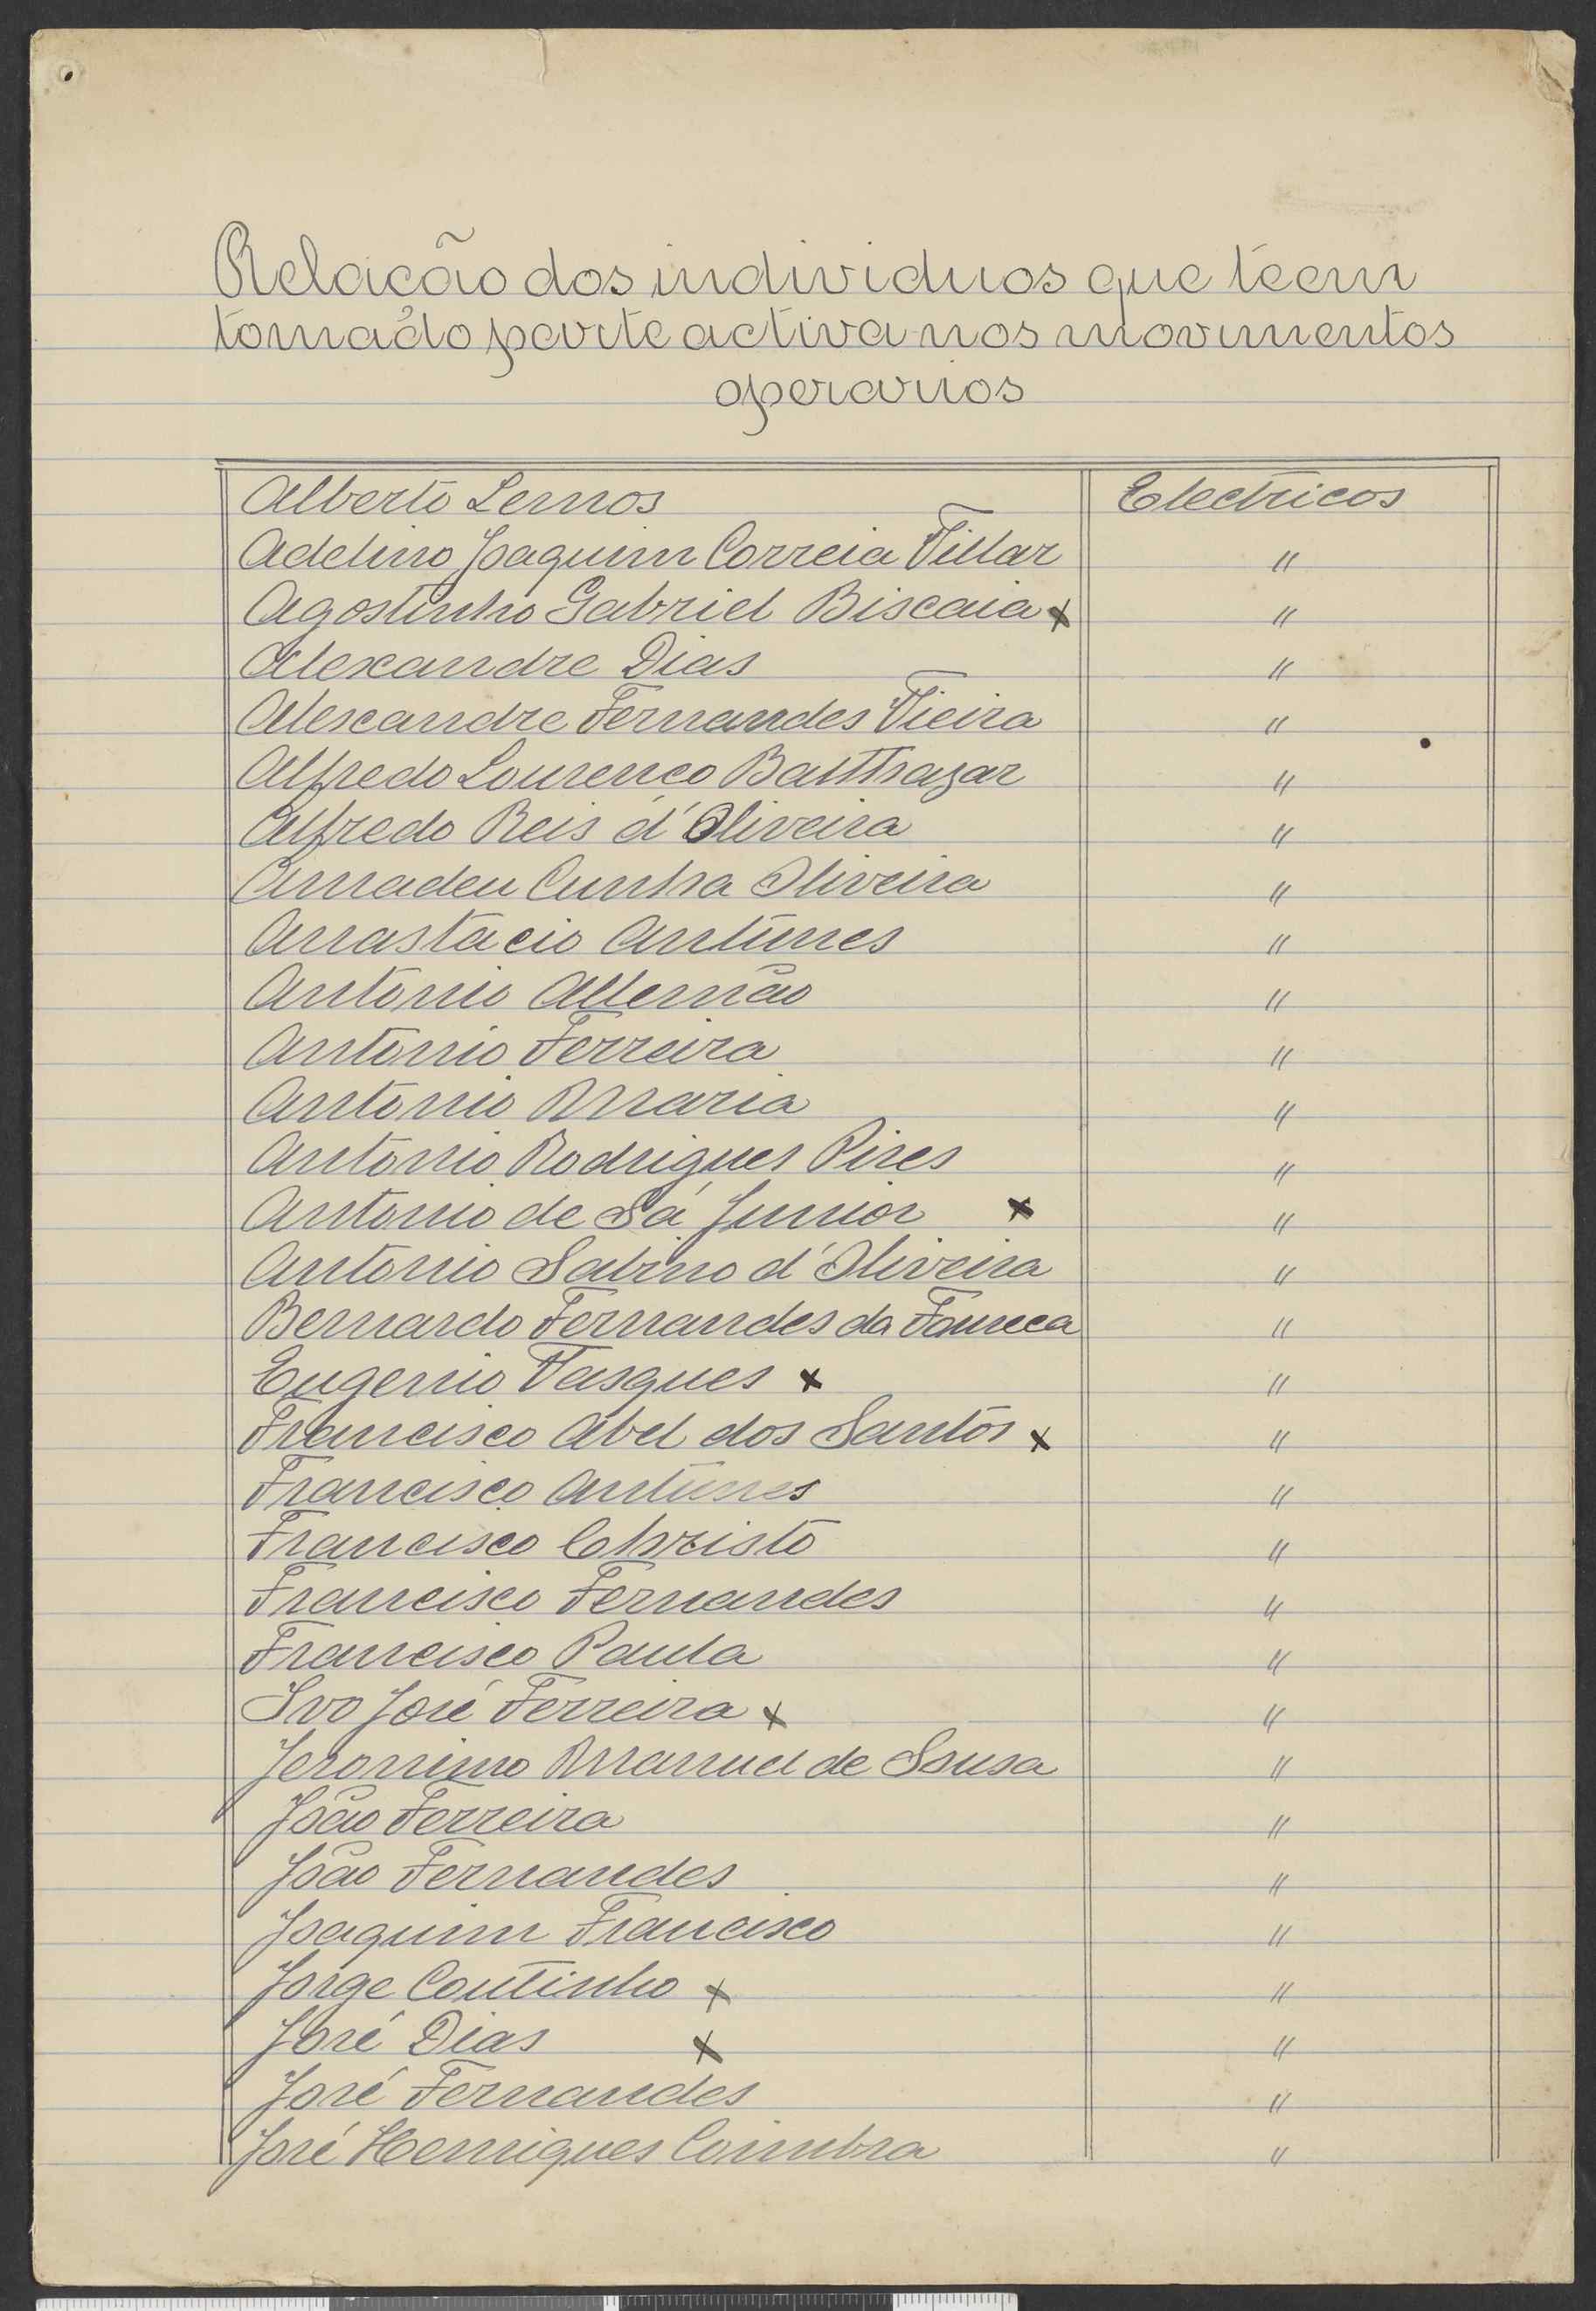 Relação dos individuos que téem
tomado parte activa nos movimentos
operarios
Alberto Lemos Electricos
Adelino Joaquim Correia Villar "
Agostinho Gabriel Biscaia x "
Alexandre Dias "
Alexandre Fernandes Vieira "
Alfredo Lourenço Balthazar "
Alfredo Reis d'Oliveira "
Amadeu Cunha Oliveira "
Anastacio Antunes "
Antonio Allemão "
Antonio Ferreira "
Antonio Maria "
Antonio Rodrigues Pires "
Antonio de Sá Junior x "
Antonio Sabino d'Oliveira "
Bernardo Fernandes da Fonseca "
Eugenio Vasques x "
Francisco Abel dos Santos x "
Francisco Antunes "
Francisco Christo "
Francisco Fernandes "
Francisco Paula "
Ivo José Ferreira x "
Jeronimo Manuel de Sousa "
João Ferreira "
João Fernandes "
Joaquim Francisco "
Jorge Coutinho x "
José Dias x "
José Fernandes "
José Henriques Coimbra "